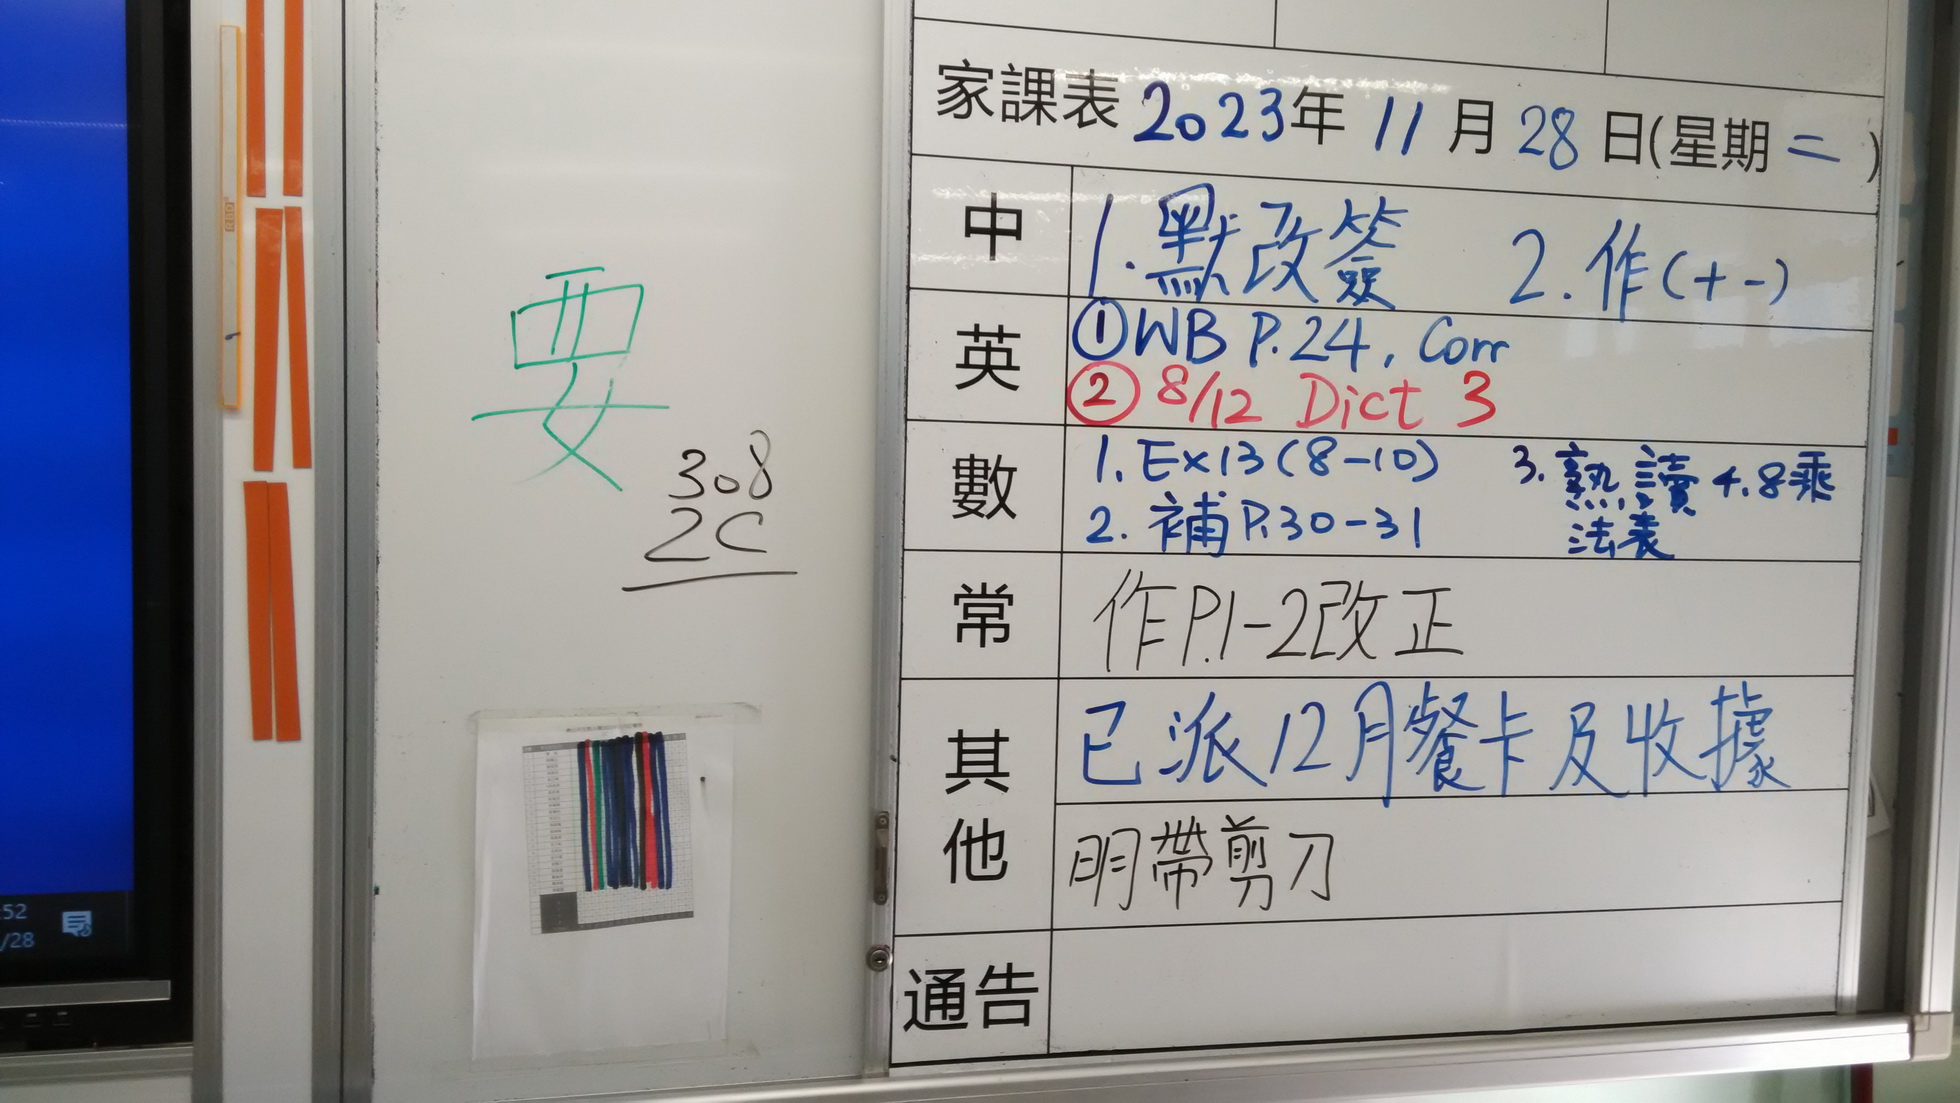 要
308
2C
家課表 2023年 11月 28日(星期二)
中 1. 默改簽 2. 作(+-)
英 ①WB P.24, Corr
② 8/12 Dict 3
數 1. Ex13(8-10) 3. 熟讀4.8乘
2. 補P.30-31 法表
常 作P.1-2改正
其他 已派12月餐卡及收據
明帶剪刀
通告
:52
/28